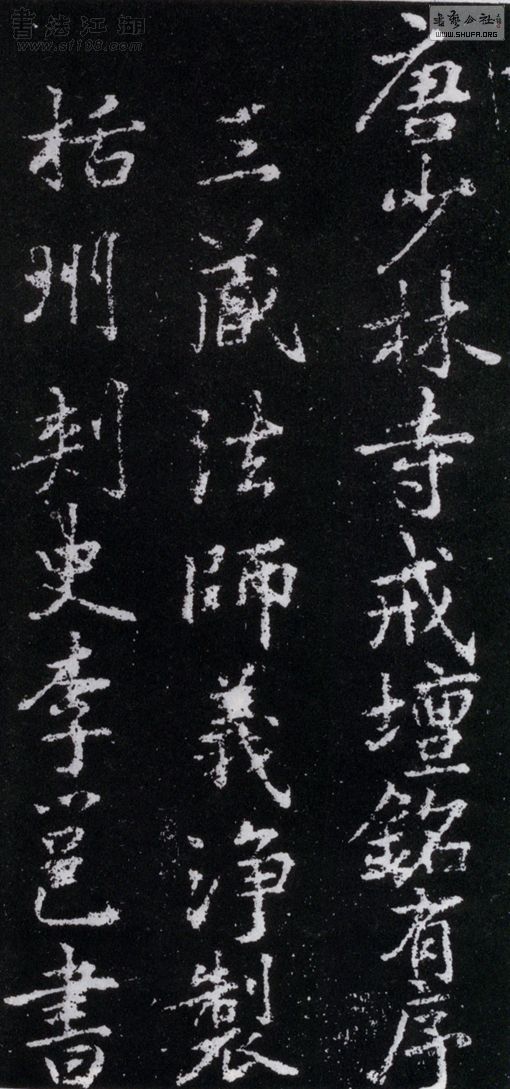 唐少林寺戒壇銘有序
三藏法師義浄製
括州刺史李邕書
書法江湖
www.sf108.com
書藝公社
WWW.SHUFA.ORG